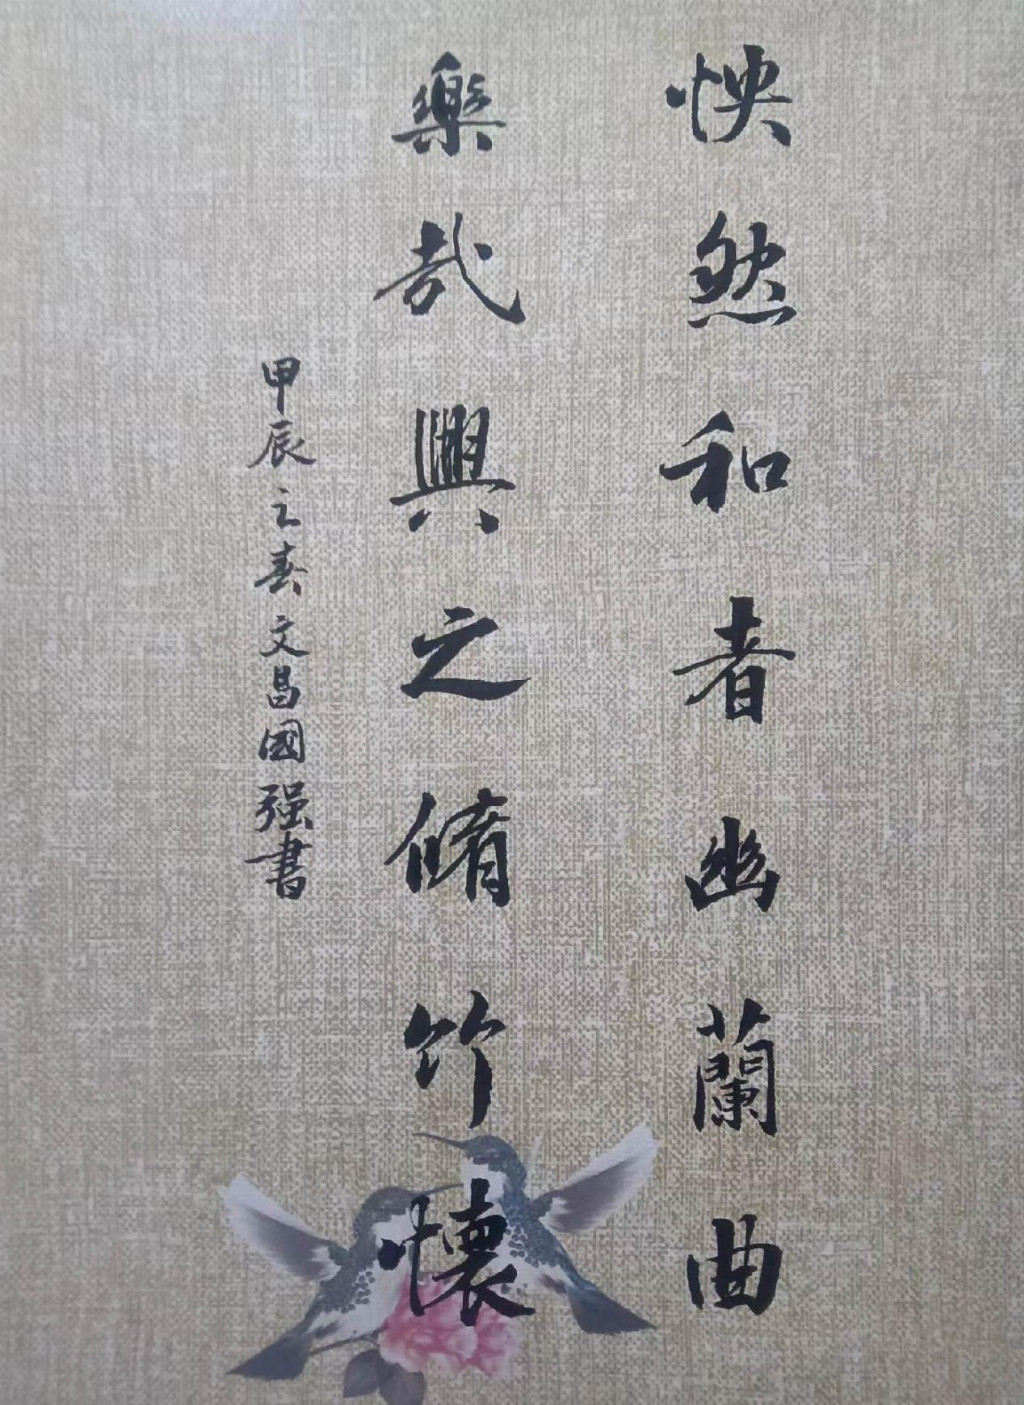 怏然和者幽蘭曲
樂哉興之脩竹懷
甲辰之春文昌國强書